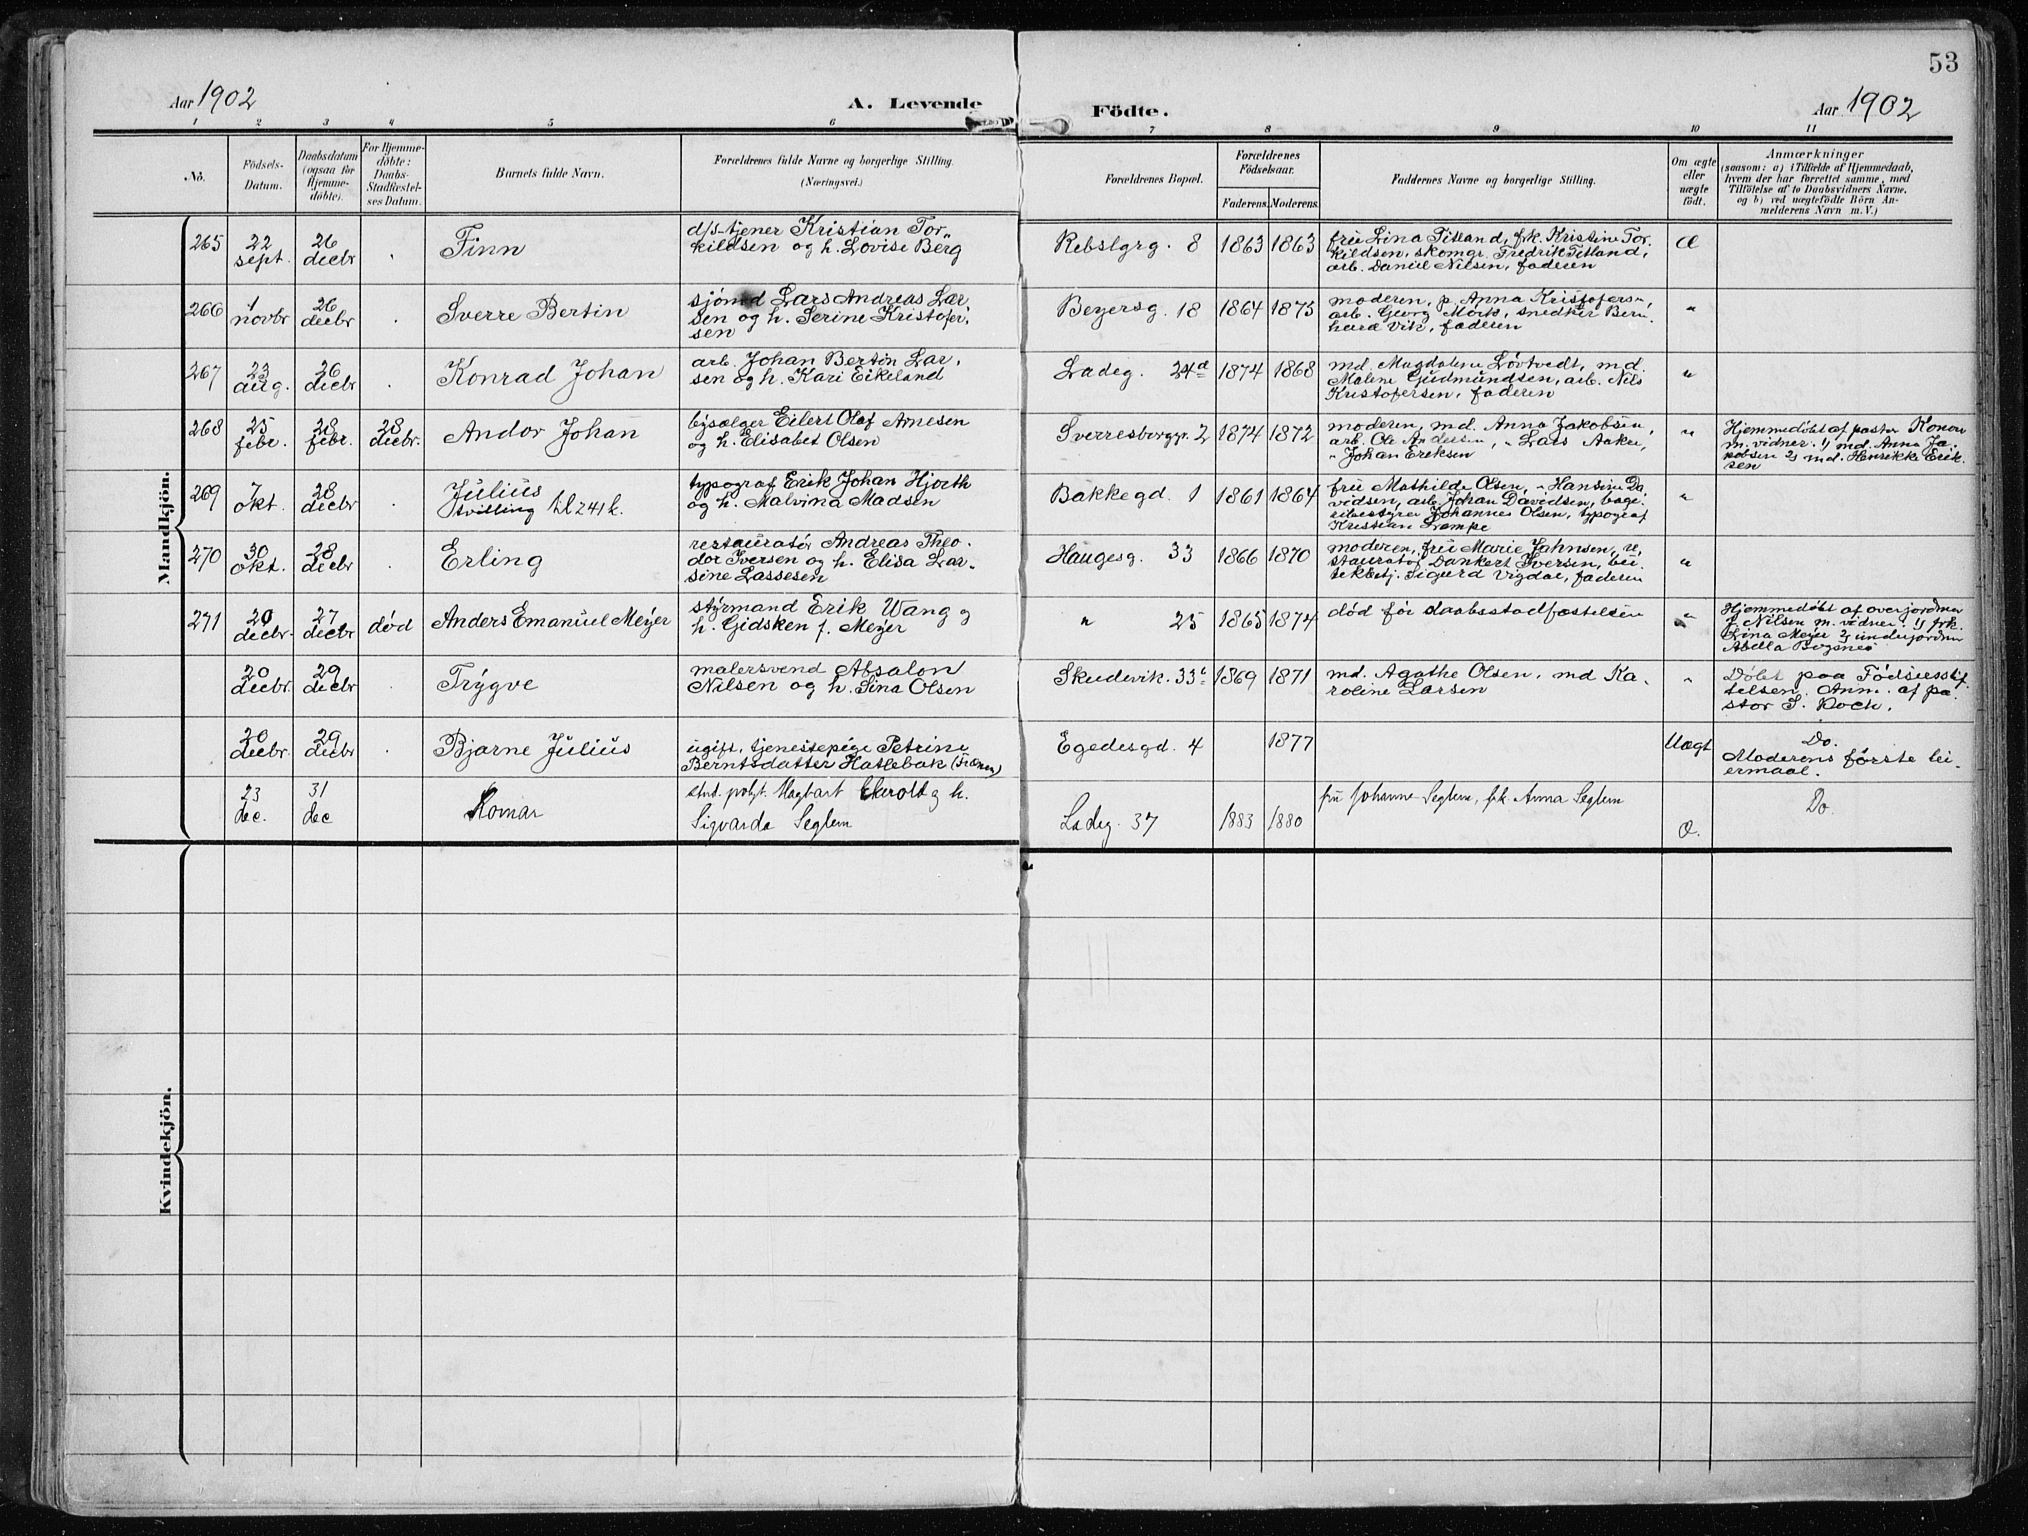 53
Aar 1902
A. Levende
Födte.
Aar 1902
1 2 3 4 5 6 7 8 9 10 11
No.
Födsels-
Datum.
Daabsdatum
(ogsaa for
Hjemme-
döbte).
For Hjemme-
döbte:
Daabs-
Stadfæstel-
ses Datum.
Barnets fulde Navn.
Forældrenes fulde Navne og borgerlige Stilling.
(Næringsvei.)
Forældrenes Bopæl.
Forældrenes
Födselsaar.
Faderens. Moderens.
Faddernes Navne og borgerlige Stilling.
Om ægte
eller
uægte
födt.
Anmærkninger
(saasom: a) i Tilfælde af Hjemmedaab,
hvem der har forrettet samme, med
Tilföielse af to Daabsvidners Navne,
og b) ved uægtefödte Börn An-
melderens Navn m. V.)
Mandkjön.
265
22
sept.
26
decbr
Finn
d/s-tjener Kristian Tor-
kildsen og h. Lovise Berg
Rebslgrg. 8
1863 1863
fru Lina Titland, frk. Kristine Tor-
kildsen, skomgr. Fredrik Titland,
arb. Daniel Nilsen, faderen
Æ
266
1
novbr
26
decbr
Sverre Bertin
sjömd Lars Andreas Lar-
sen og h. Serine Kristofer-
sen
Beyersg. 18
1864 1873
moderen, p. Anna Kristofersn,
arb. Georg Mörk, snedker Bern-
hard Vik, faderen
"
267
23
aug.
26
decbr
Konrad Johan
arb. Johan Bertin Lar-
sen og h. Kari Eikeland
Ladeg. 24a
1874 1868
md. Magdalene Lövtvedt, md.
Malene Gudmundsen, arb. Nils
Kristofersen, faderen
"
268
25
febr.
28
febr.
28
decbr.
Andor Johan
bysælger Eilert Olaf Arnesen
og h. Elisabet Olsen
Sverresborggr. 2
1874 1872
moderen, md. Anna Jakobsen,
arb. Ole Andersen, " Lars Aaker,
" Johan Eriksen
"
Hjemmedöbt af pastor Konow
m. vidner: 1) md. Anna Ja-
kobsen 2) md. Henrikke Erik-
sen
269
7
okt.
28
decbr
Julius
tvilling til 241 k.
typograf Erik Johan Hjorth
og h. Malvina Madsen
Bakkegd. 1
1861 1864
fru Mathilde Olsen, " Hansine Da-
vidsen, arb. Johan Davidsen, bage-
ribestyrer Johannes Olsen, typograf
Kristian Lampe
"
270
30
okt.
28
decbr
Erling
restauratör Andreas Theo-
dor Iversen og h. Elisa Lar-
sine Lassesen
Haugesg. 33
1866 1870
moderen, fru Marie Jahnsen, re-
stauratör Dankert Iversen, bu-
tikbetj. Sigurd Vigdal, faderen
"
271
20
decbr.
27
decbr
död
Anders Emanuel Meyer
styrmand Erik Wang og
h. Gidsken f. Meyer
" 25
1865 1874
död för daabsstadfæstelsen
"
Hjemmedöbt af overjordmor
J. Nilsen m. vidner: 1) frk.
Lina Meyer 2) underjordmor
Abella Bogsnes
20
decbr.
29
decbr
Trygve
malersvend Absalon
Nilsen og h. Lina Olsen
Skudevik. 33
1869 1871
md. Agathe Olsen, md Ka-
roline Larsen
"
Döbt paa Födselsstif-
telsen. Anm. af pa-
stor S. Koch.
20
decbr.
29
decbr
Bjarne Julius
ugift, tjenestepige Petrine
Berntsdatter Hatlebak (Frænen)
Egedesgd. 4
1877
Uægt
Do.
Moderens förste lei-
ermaal.
23
dec.
31
dec
stud. polyt. Hagbart Ekerolt og h.
Sigvarda Seglem
Ladeg. 37
1883 1880
fru Johanne Seglem, frk. Anna Seglem
Æ.
Do.
Kvindekjön.